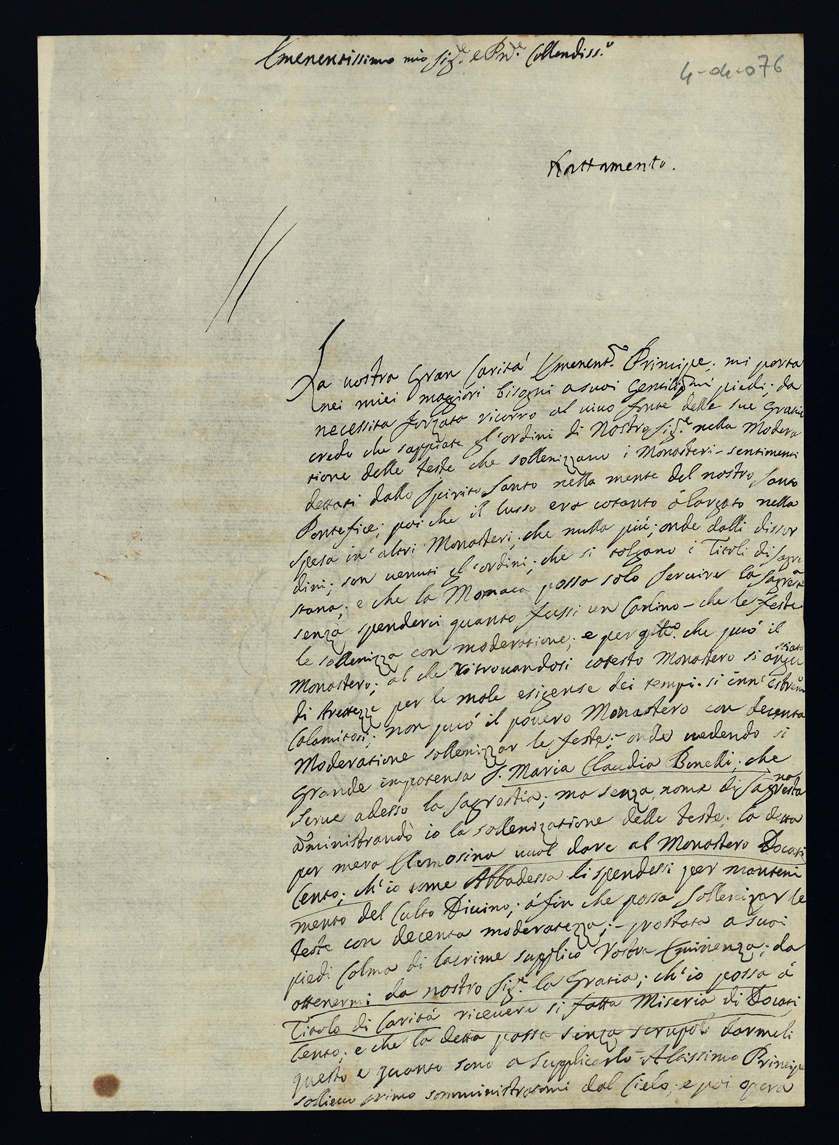 Emenentissimo mio Sig.re e Pne. Collendiss.o
4-04-076
Trattamento.
La vostra Gran Carità Emenent.o Principe; mi porta
nei miei maggiori bisogni a suoi piedi; da
necessita forzata ricorro al vivo fonte delle sue Gratie
credo che sappiate gl'ordini di Nostro Sig.re nella Modera
tione delle feste che sollenizzano i Monasteri - sentimenti
dettati dallo Spirito Santo nella mente del nostro Santo
Pontefice; poi che il lusso era cotanto alargato nella
spesa in altri Monasteri, che nulla più; onde dalli disor
dini; son venuti gl'ordini; che si tolgano i Titoli di Sagre
stana; e che la Monaca possa solo servire la Sagrestia
senza spenderci quanto fussi un Carlino - che le feste
le sollenizza con moderatione; e per che può il
Monastero; al che ritrovandosi cotesto Monastero si
di strettezze per le male esigense dei tempi si
Calamitosi; non può il povero Monastero con decenta
Moderatione sollenizzar le feste; - onde vedendo si
Grande impotensa S. Maria Claudia Bonelli; che
serve adesso la Sagrestia; ma senza nome di Sagrestana
aministrando io la sollenizatione delle feste. la detta
per mera Elemosina vuol dare al Monastero Docati
Cento; ch'io come Abbadessa li spendessi per manteni
mento del Culto Divino; a fin che possa Sollenizar le
feste con decenta moderatezza; - prostata a suoi
piedi Colma di lacrime supplico Vostra Eminenza; da
ottenermi da nostro Sig.re la Gratia; ch'io possa à
Titolo di Carità ricevere si fatta Miseria di Docati
Cento; e che la detta possa senza scrupolo darmeli
questo e quanto sono a supplicarlo Altissimo Principe
sollievo primo somministratomi dal Cielo; e poi opera